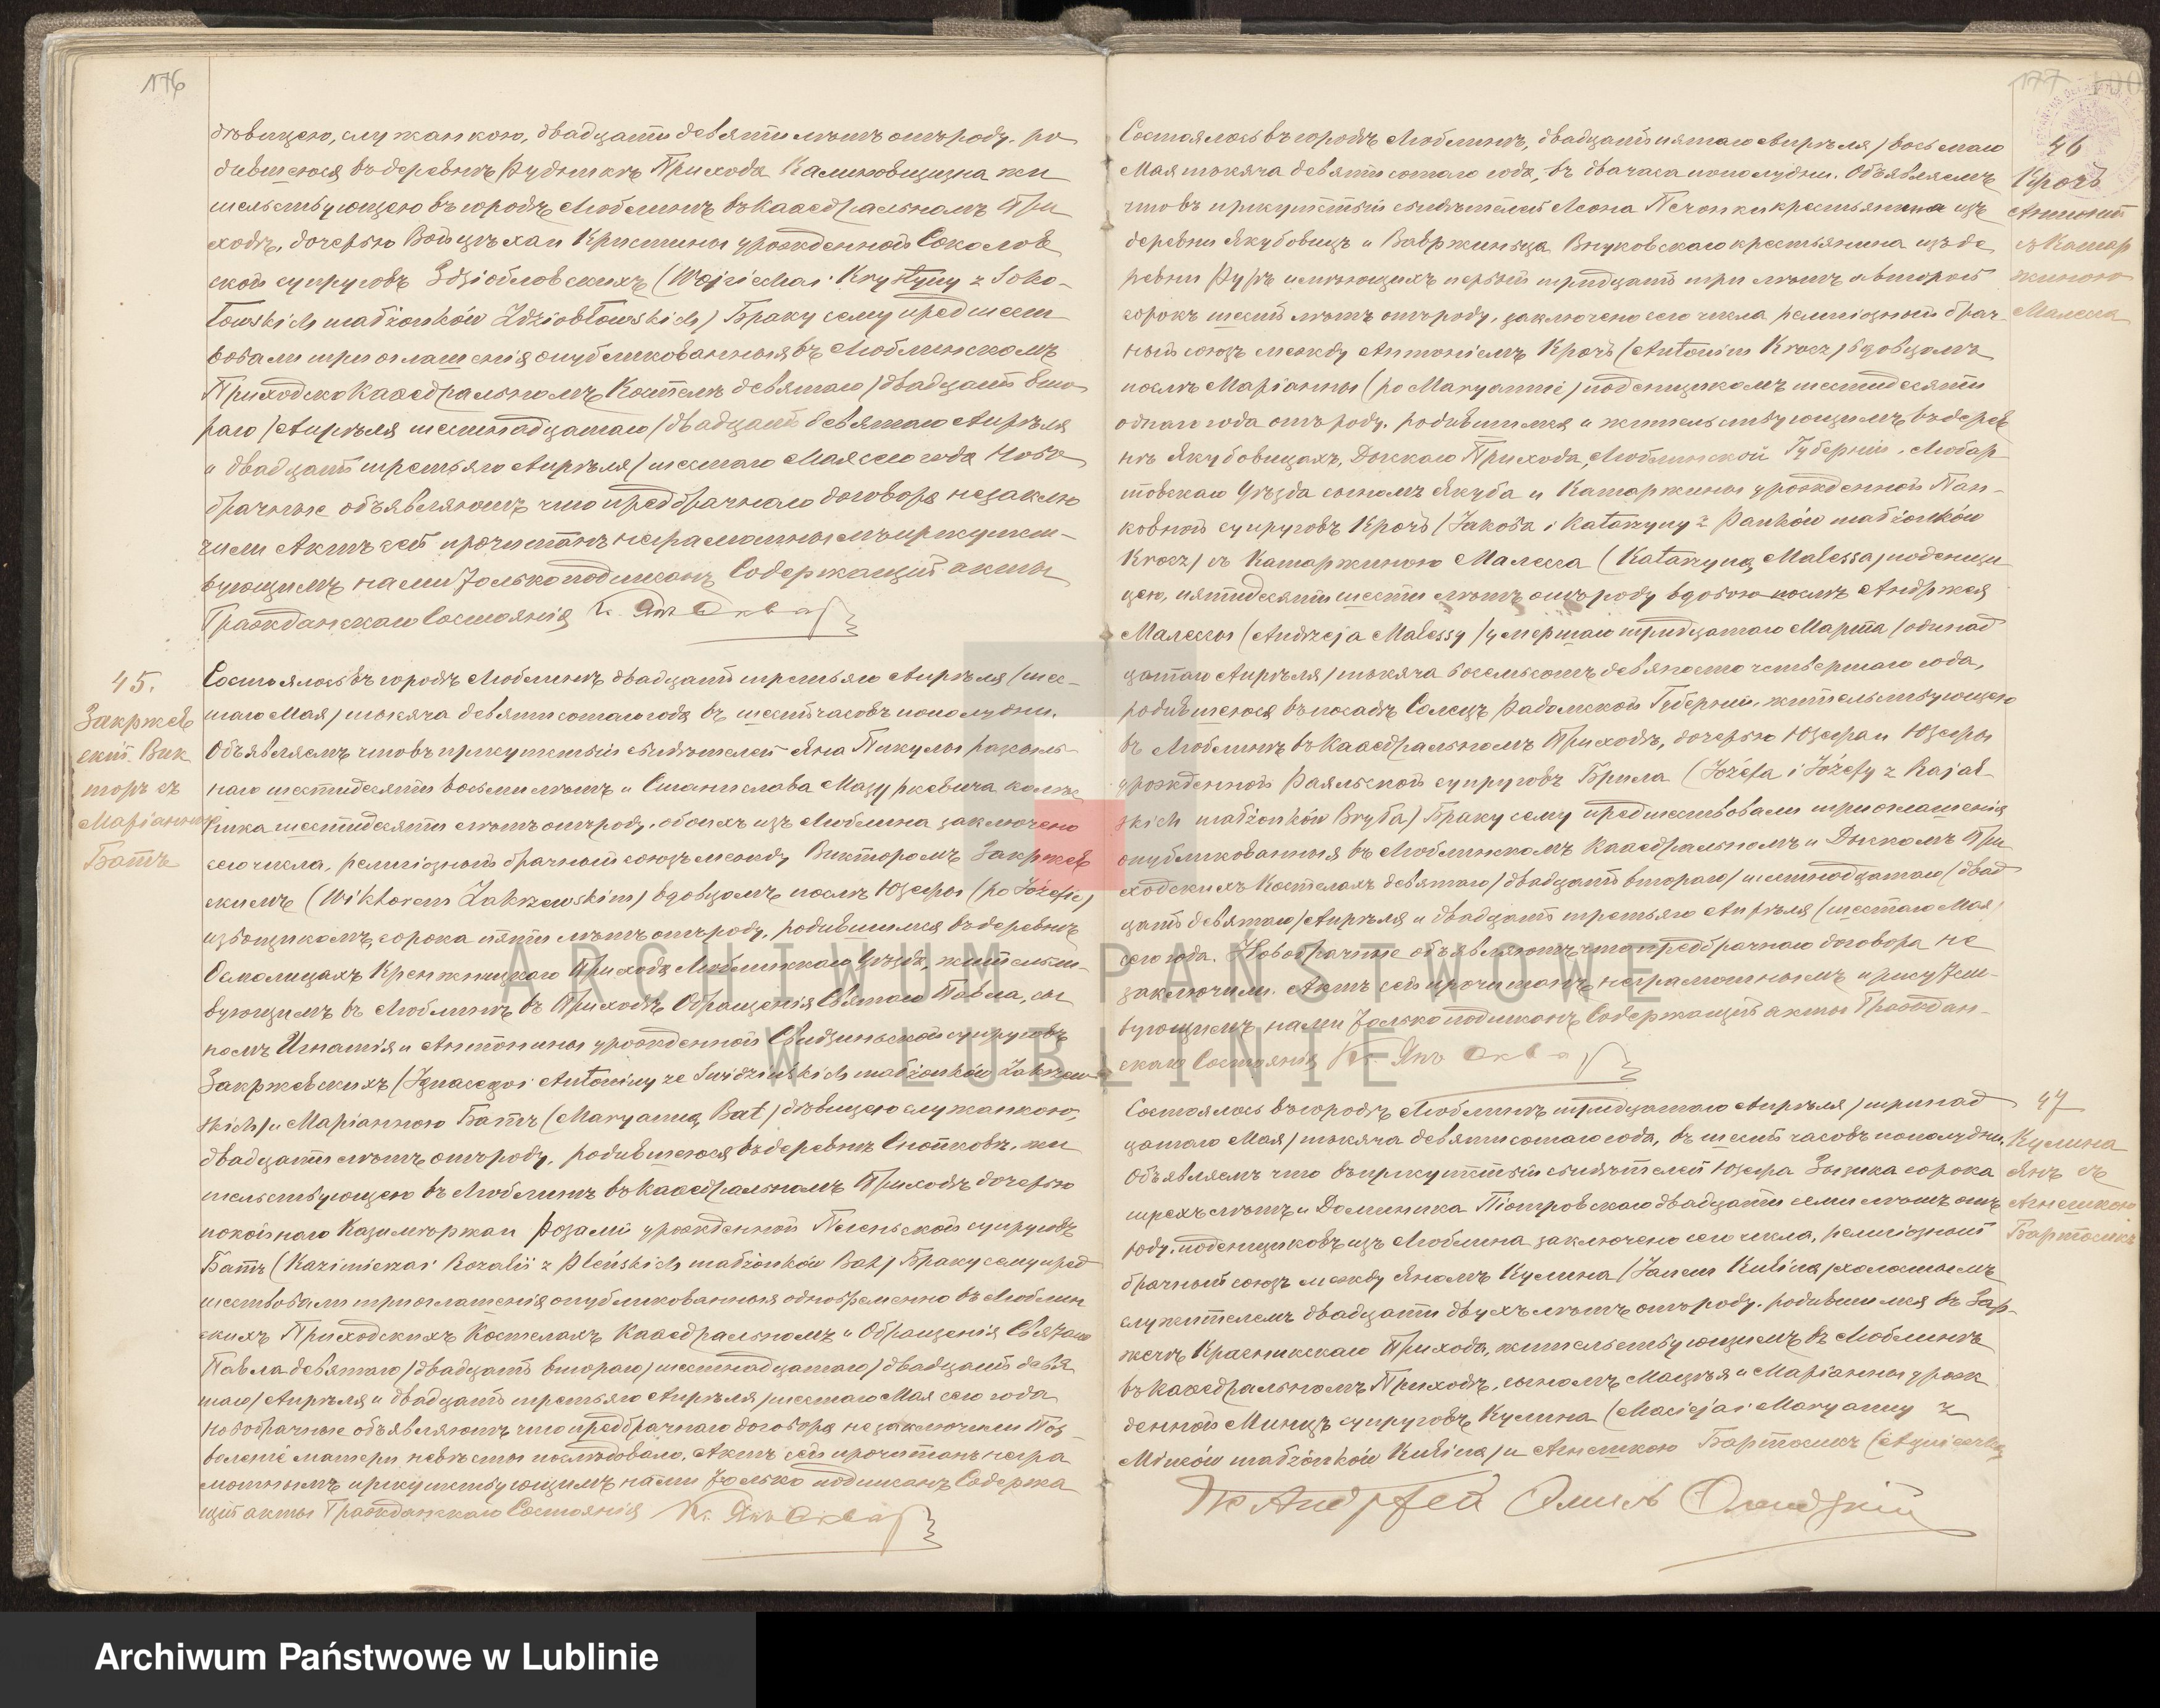 176
дѣвицею, служанкою, двадцати девяти лѣтъ отъ роду, ро
дившеюся въ деревнѣ Рудникъ Прихода Калиновщизна жи
тельствующею въ городѣ Люблинѣ въ Каѳедральномъ При
ходѣ, дочерью Войцѣха и Кристины урожденной Соколов
ской супруговъ Здзіобловскихъ (Wojciecha i Krystyny z Soko-
łowskich małżonków Zdziobłowskich) Браку сему предшест
вовали три оглашенія опубликованныя въ Люблинскомъ
Приходско Каѳедральномъ Костелѣ девятаго /двадцать вто
раго/ Апрѣля шестнадцатаго /двадцать девятаго Апрѣля
и двадцать третьяго Апрѣля /шестаго Мая сего года Ново
брачные объявляютъ что предбрачнаго договора не заклю
чили Актъ сей прочитанъ неграмотнымъ присутст-
вующимъ нами только подписанъ Содержащій акты
Гражданскаго Состоянія К. Янъ
45.
Закржев
скій Вик
торъ съ
Маріанною
Батъ
Состоялось въ городѣ Люблинѣ двадцать третьяго Апрѣля /шес-
таго Мая/ тысяча девятисотаго года въ шесть часовъ пополудни.
Объявляемъ что въ присутствіи свидѣтелей Яна Пикулы разсыль-
наго шестидесяти восьми лѣтъ и Станислава Мазуркевича
шестидесяти лѣтъ отъ роду, обоихъ изъ Люблина заключено
сего числа, религіозный брачный союзъ между Викторомъ Закржев
скимъ (Wiktorem Zakrzewskim) вдовцомъ послѣ Юзефы (po Józefie)
извощикомъ, сорока пяти лѣтъ отъ роду, родившимся въ деревнѣ
Осмолицахъ Кренжницкаго Прихода Люблинскаго Уѣзда, жительст-
вующимъ въ Люблинѣ въ Приходѣ Обращенія Святаго Павла, сы
номъ Игнатія и Антонины урожденной Свидзинской супруговъ
Закржевскихъ (Ignacego i Antoniny ze Świdzińskich małżonków Zakrzew-
skich) и Маріанною Батъ (Maryanną Bat) дѣвицею служанкою,
двадцати лѣтъ отъ роду, родившеюся въ деревнѣ Снопковъ, жи
тельствующею въ Люблинѣ въ Каѳедральномъ Приходѣ дочерью
покойнаго Казимѣржа и Розаліи урожденной Пленьской супруговъ
Батъ (Kazimierza i Rozalii z Pleńskich małżonków Bat) Браку сему пред
шествовали три оглашенія опубликованныя одновременно въ Люблин
скихъ Приходскихъ Костелахъ Каѳедральномъ и Обращенія Святаго
Павла девятаго /двадцать втораго/ шестнадцатаго /двадцать девя
таго/ Апрѣля и двадцать третьяго Апрѣля /шестаго Мая сего года
Новобрачные объявляютъ что предбрачнаго договора не заключили Поз-
воленіе матери невѣсты послѣдовало. Актъ сей прочитанъ негра
мотнымъ присутствующимъ нами только подписанъ Содержа
щій акты Гражданскаго Состоянія К. Янъ
177
46
Крочъ
Антоній
съ Катар
жиною
Малесса
Состоялось въ городѣ Люблинѣ, двадцать пятаго Апрѣля /восьмаго
Мая тысяча девятисотаго года, въ два часа пополудни. Объявляемъ
что въ присутствіи свидѣтелей Леона Печонки крестьянина изъ
деревни Якубовицъ и Вавржиньца Внуковскаго крестьянина изъ де
ревни Руръ имѣющихъ первый тридцать три лѣтъ а второй
сорокъ шесть лѣтъ отъ роду, заключено сего числа религіозный брач-
ный союзъ между Антоніемъ Крочъ (Antonim Krocz) вдовцомъ
послѣ Маріанны (po Maryannie) поденщикомъ шестидесяти
одного года отъ роду, родившимся и жительствующимъ въ дерев
нѣ Якубовицахъ, Дыскаго Прихода, Люблинской Губерніи, Любар-
товскаго Уѣзда сыномъ Якуба и Катаржины урожденной Пан-
ковной супруговъ Крочъ (Jakóba i Katarzyny z Panków małżonków
Krocz) съ Катаржиною Малесса (Katarzyną Malessa) поденщи
цею, пятидесяти шести лѣтъ отъ роду вдовою послѣ Андржея
Малессы (Andrzeja Malessy) умершаго тридцатаго Марта /одинад
цатаго Апрѣля/ тысяча восемьсотъ девяносто четвертаго года,
родившеюся въ посадѣ Солецъ Радомской Губерніи, жительствующею
въ Люблинѣ въ Каѳедральномъ Приходѣ, дочерью Юзефа и Юзефы
урожденной Раяльской супруговъ Брыла (Józefa i Józefy z Rajal-
skich małżonków Bryła) Браку сему предшествовали три оглашенія
опубликованныя въ Люблинскомъ Каѳедральномъ и Дыскомъ При
ходскихъ Костелахъ девятаго /двадцать втораго/ шестнадцатаго /двад
цать девятаго/ Апрѣля и двадцать третьяго Апрѣля /шестаго Мая/
сего года. Новобрачные объявляютъ что предбрачнаго договора не
заключили. Актъ сей прочитанъ неграмотнымъ присутст-
вующимъ нами только подписанъ Содержащій акты Граждан-
скаго Состоянія К. Янъ
47
Кулина
Янъ съ
Агнешкою
Бартосикъ
Состоялось въ городѣ Люблинѣ тридцатаго Апрѣля /тринад
цатаго Мая/ тысяча девятисотаго года, въ шесть часовъ пополудни,
Объявляемъ что въ присутствіи свидѣтелей Юзефа Зызика сорока
трехъ лѣтъ и Доминика Піотровскаго двадцати семи лѣтъ отъ
роду, поденщиковъ изъ Люблина заключено сего числа, религіозный
брачный союзъ между Яномъ Кулина (Janem Kulina) холостымъ
служителемъ двадцати двухъ лѣтъ отъ роду, родившимся въ Зар-
жечѣ Красникскаго Прихода, жительствующимъ въ Люблинѣ
въ Каѳедральномъ Приходѣ, сыномъ Мацѣя и Маріанны урож
денной Минцъ супруговъ Кулина (Macieja i Maryanny z
Minców małżonków Kulina) и Агнешкою Бартосикъ (Agnieszką
ARCHIWUM PAŃSTWOWE
W LUBLINIE
Archiwum Państwowe w Lublinie